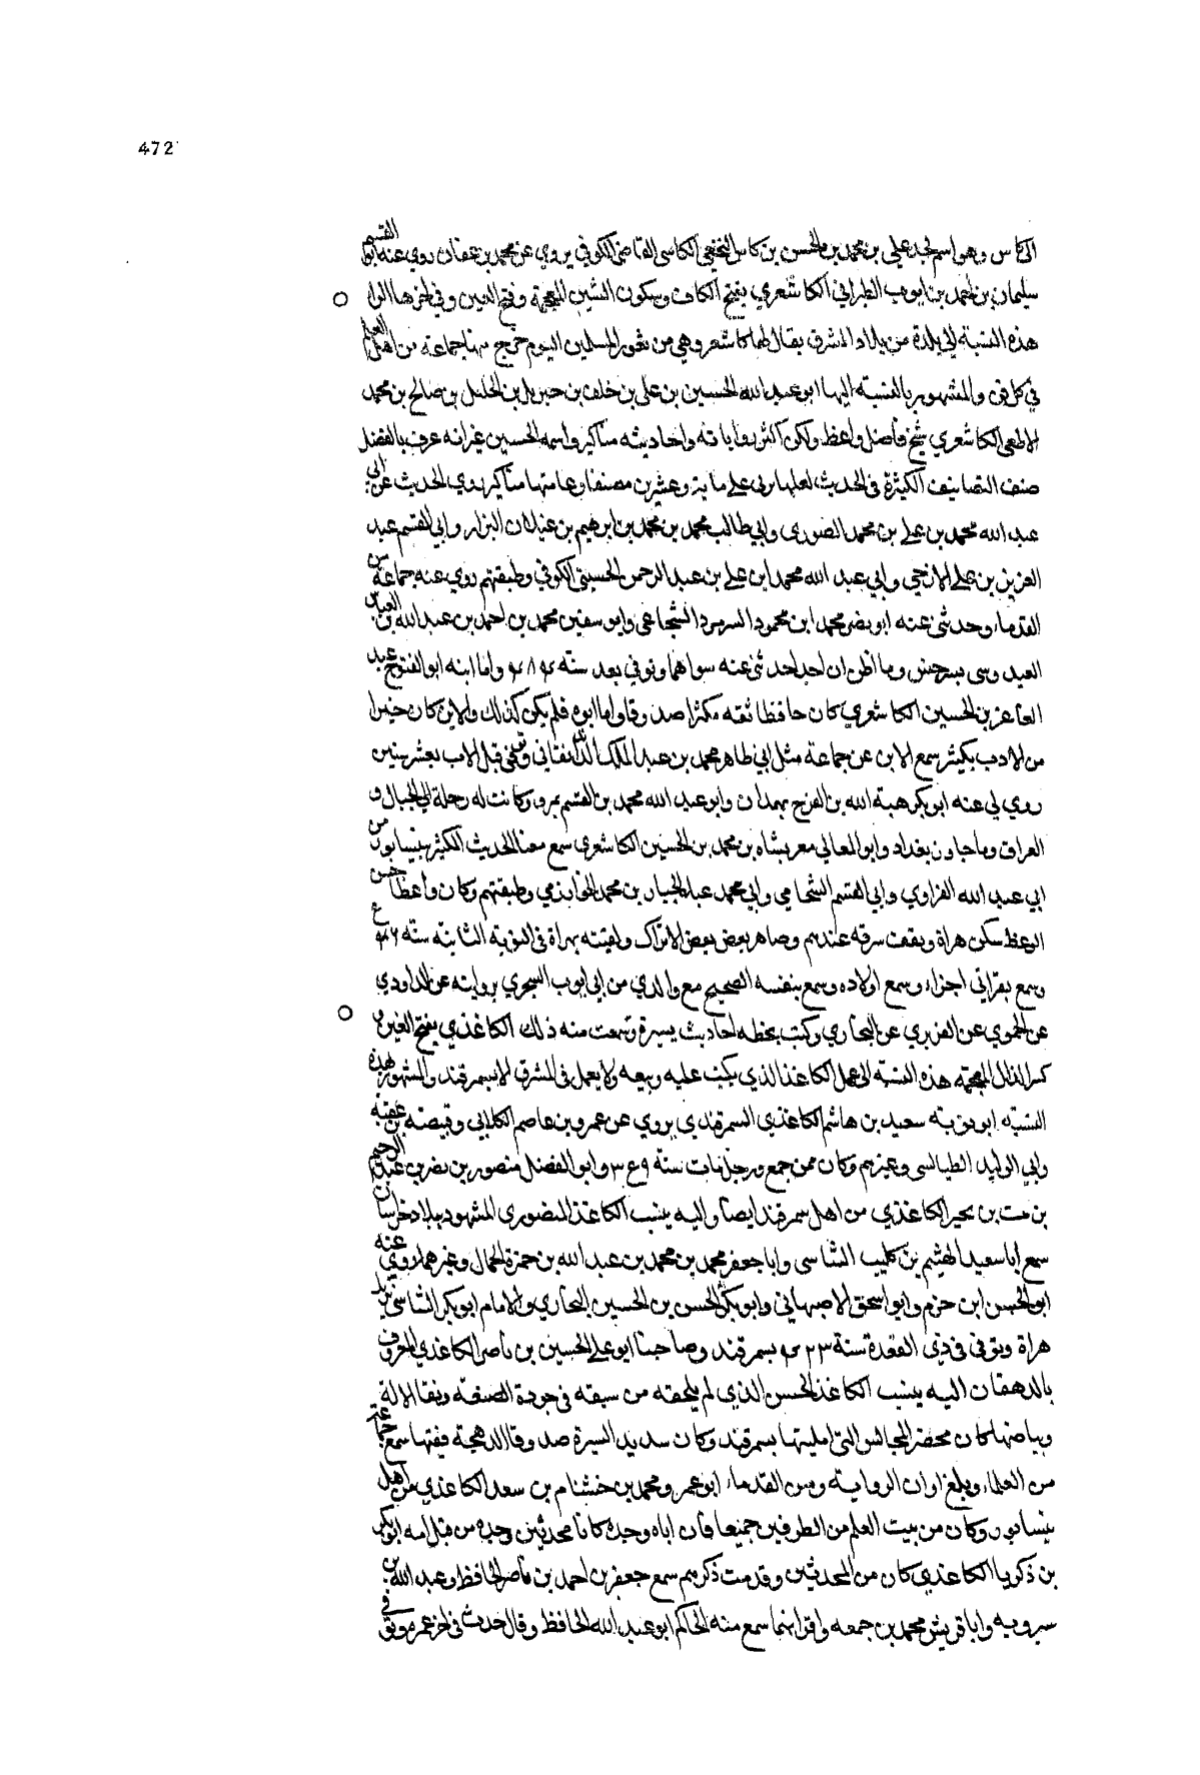 472
الى كاس وهو اسم لجد علي بن محمد بن الحسن بن كاس النخعي الكاسي القاضي الكوفي يروي عن محمد بن عفان روي عنه ابو القسم
سليمان بن احمد بن ايوب الطبراني الكاشغري بفتح الكاف وسكون الشين المعجمة وفتح الغين وفي اخرها الرا
هذه النسبة الى بلدة من بلاد المشرق يقال لها كاشغر وهي من ثغور المسلمين اليوم خرج منها جماعة من اهل العلم
في كل فن والمشهور بالنسبة اليها ابو عبد الله الحسين بن علي بن خلف بن جبريل بن الخليل بن صالح بن محمد
الكاشغري شيخ فاضل واعظ ولكن اكثر رواياته واحاديثه مناكير واسمه الحسين غير انه عرف بالفضل
صنف التصانيف الكثيرة في الحديث لعلها تربي على ماية وعشرين مصنفا وعامتها مناكير روي الحديث عن ابي
عبد الله محمد بن علي بن محمد الصوري وابي طالب محمد بن محمد بن ابرهيم بن غيلان البزار وابي القسم عبد
العزيز بن علي الازجي وابي عبد الله محمد ابن علي بن عبد الرحمن الحسيني الكوفي وطبقتهم روي عنه جماعة من
القدماء وحدثني عنه ابو نصر محمد ابن محمود الشجاعي وابو سفين محمد بن احمد بن عبد الله بن العباس
بسرخس وما اظن ان احدا حدثني عنه سواهما وتوفي بعد سنة واما ابنه ابو الفتوح عبد
الغافر بن الحسين الكاشغري كان حافظا ثقه مكثرا صدوقا واما ابوه فلم يكن كذلك والابن كان خيرا
من الاب بكثير سمع الابن عن جماعة مثل ابي طاهر محمد بن عبد الملك وتوفي قبل الاب بعشر سنين
روي لي عنه ابو بكر هبة الله بن الفرج بهمدان وابو عبد الله محمد بن القسم بمرو وكانت له رحلة الى الجبال و
العراق وما جاوز بغداد وابو المعالي بن محمد بن الحسين الكاشغري سمع معنا الحديث الكثير بنيسابور من
ابي عبد الله الفراوي وابي القسم الشحامي وابي محمد عبد الجبار بن محمد الخواري وطبقتهم وكان واعظا حسن
الوعظ سكن هراة ونفقت سوقه عندهم وصاهر بعض بعض الاتراك ولقيته بهراة في النوبة الثانية سنة
وسمع بقراتي اجزاء وسمع اولاده وسمع بنفسه الصحيح مع والدي من ابي السجزي بروايته عن الداودي
عن الحموي عن الفربري عن البخاري وكتب بخطه احاديث يسيرة وسمعت منه ذلك الكاغذي بفتح الغين و
كسر الذال المعجمة هذه النسبة الى عمل الكاغذ الذي يكتب عليه وبيعه ولا يعمل في المشرق الا بسمرقند والمشهور بهذه
النسبة ابو توبة سعيد بن هاشم الكاغذي السمرقندي يروي عن عمرو بن عاصم الكلابي وقبيصة بن عقبة
وابي الوليد الطيالسي وغيرهم وكان ممن جمع ورحل مات سنة وابو الفضل منصور بن نصر بن عبد الرحيم
بن مت بن بحير الكاغذي من اهل سمرقند ايضا واليه ينسب الكاغذ المنصوري المشهور ببلاد خراسان
سمع ابا سعيد الهيثم بن كليب الشاسي وابا جعفر محمد بن محمد بن عبد الله بن حمزة الجمال وغيرهما روي عنه
ابو الحسن ابن خزم وابو اسحق الاصبهاني وابو بكر الحسن بن الحسين البخاري والامام ابو بكر الشاسي نزيل
هراة وتوفي في ذي القعدة سنة ٤٢٣ بسمرقند وصاحبنا ابو علي الحسين بن ناصر الكاغذي المعروف
بالدهقان اليه ينسب الكاغذ الحسن الذي لم يلحقه من سبقه في جودة الصنعة ونقا الالة
وبياضها كان محضر المجالس التي امليتها بسمرقند وكان سديد السيرة صدوق اللهجة فقيها سمع جماعة
من العلماء وبلغ اوان الرواية ومن القدماء ابو عمرو محمد بن خشنام بن سعد الكاغذي من اهل
نيسابور وكان من بيت العلم من الطرفين جميعا فان اباه وجده كانا محدثين وجده من قبل امه ابو بكر
بن زكريا الكاغذي كان من المحدثين وقدمت ذكرهم سمع جعفر بن احمد بن ناصر الحافظ وعبد الله بن
سيرويه وابا قريش محمد بن جمعه واقرانهما سمع منه الحاكم ابو عبد الله الحافظ وقال حدث في اخر عمره وتوفي في